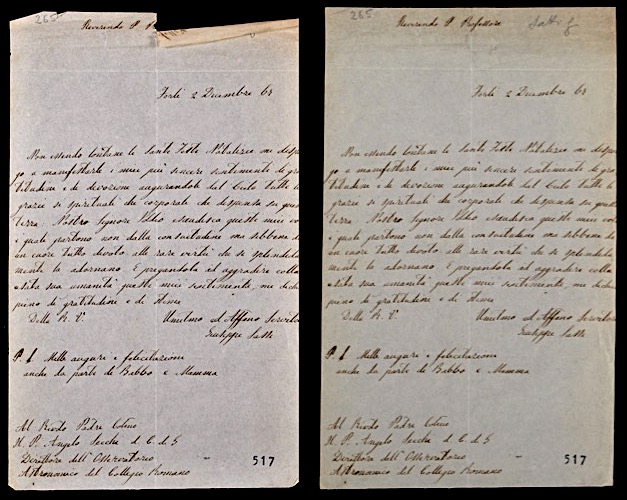 265
Reverendo P. P
Forlì 2 Dicembre 63
Non essendo lontane le Sante Feste Natalizie mi dispon
go a manifestarle i miei più sinceri sentimenti di gra
titudine e di devozione augurandole dal Cielo tutte le
grazie sì spirituali che corporali che dispensa su questa
terra. Nostro Signore esaudisca questi miei voti
i quali partono non dalla consuetudine ma sebbene da
un cuore tutto devoto alle rare virtù che sì splendida
mente la adornano. E pregandola di aggradire colla
solita sua umanità questi miei sentimenti, mi dichi
pieno di gratitudine e di stima
Della R. V.
Umilmo ed Affmo Servitore
Giuseppe Satti
P. S. Mille auguri e felicitazioni
anche da parte di Babbo e Mamma
Al Revdo Padre
Il P. Angelo Secchi d. C. d. G
Direttore dell' Osservatorio
Astronomico del Collegio Romano
517
265
Reverendo P. Professore
Forlì 2 Dicembre 63
Non essendo lontane le Sante Feste Natalizie mi dispon
go a manifestarle i miei più sinceri sentimenti di gra
titudine e di devozione augurandole dal Cielo tutte le
grazie sì spirituali che corporali che dispensa su questa
terra. Nostro Signore esaudisca questi miei voti
i quali partono non dalla consuetudine ma sebbene da
un cuore tutto devoto alle rare virtù che sì splendida
mente la adornano. E pregandola di aggradire colla
solita sua umanità questi miei sentimenti, mi dichi
pieno di gratitudine e di stima
Della R. V.
Umilmo ed Affmo Servitore
Giuseppe Satti
P. S. Mille auguri e felicitazioni
anche da parte di Babbo e Mamma
Al Revdo Padre
Il P. Angelo Secchi d. C. d. G
Direttore dell' Osservatorio
Astronomico del Collegio Romano
517